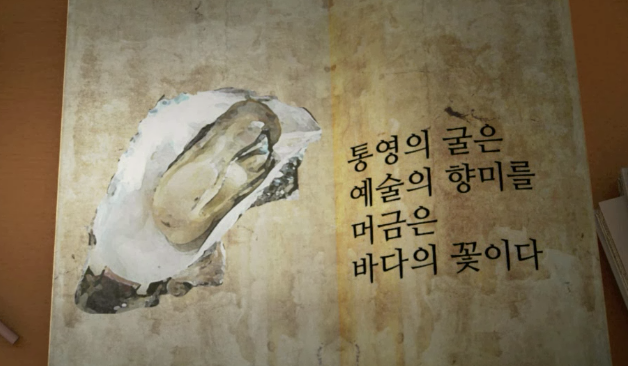 통영의 굴은
예술의 향미를
머금은
바다의 꽃이다